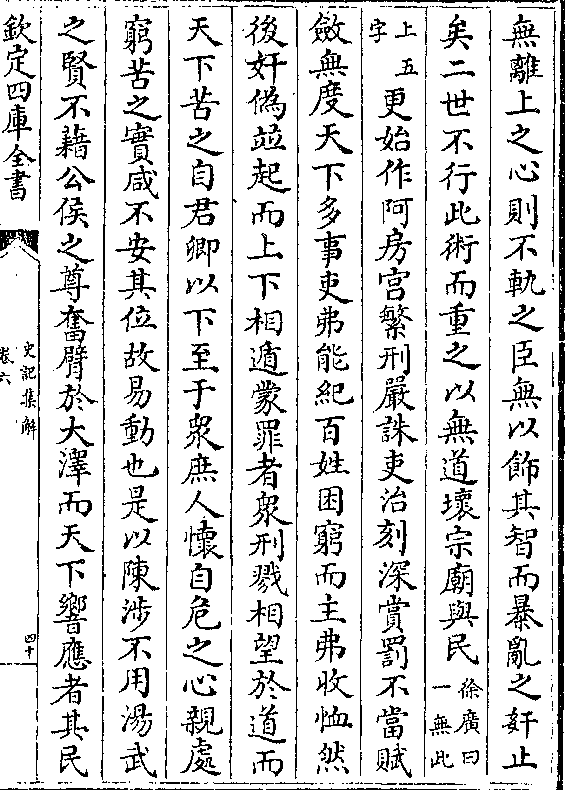 無離上之心則不軌之臣無以飾其智而暴亂之奸止
矣二世不行此術而重之以無道壞宗廟與民徐廣曰一無此
上五字更始作阿房宫繁刑嚴誅吏治刻深賞罰不當賦
斂無度天下多事吏弗能紀百姓困窮而主弗收恤然
後奸偽竝起而上下相遁蒙罪者衆刑戮相望於道而
天下苦之自君卿以下至于衆庶人懷自危之心親處
窮苦之實咸不安其位故易動也是以陳涉不用湯武
之賢不藉公侯之尊奮臂於大澤而天下響應者其民
欽定四庫全書
史記集解
卷六
四十